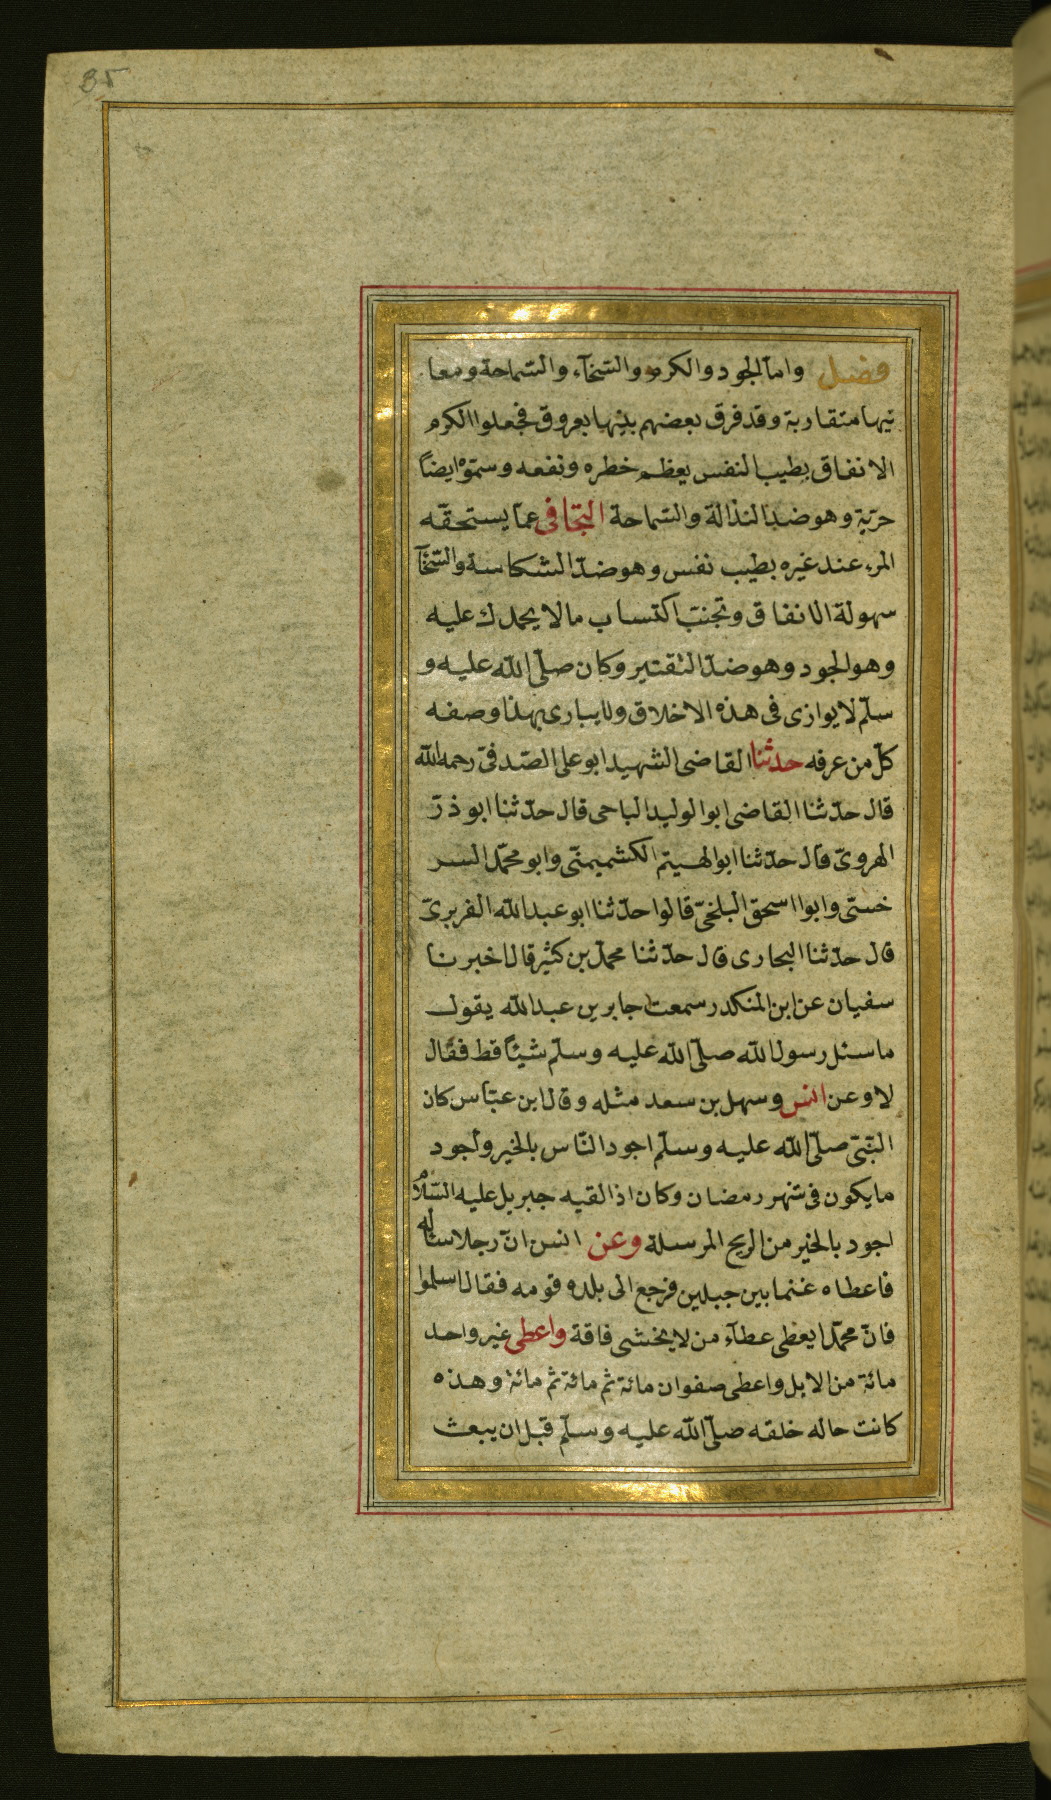 35
فصل واما الجود والكرم والسّخآء والسّماحة ومعا
نيها متقاربة وقد فرق بعضهم بينها بفروق فجعلوا الكرم
الانفاق بطيب النفس يعظم خطره ونفعه وسمّوه ايضاً
حرّية وهو ضد النذالة والسّماحة التجافى عمّا يستحقّه
المرء عند غيره بطيب نفس وهو ضدّ الشكاسة والسّخآ
سهولة الانفاق وتجنب اكتساب مالا يحمدك عليه
وهو الجود وهو ضدّ التقتير وكان صلّى الله عليه و
سلّم لا يوازى فى هذه الاخلاق ولا يبارى بهذا وصفه
كلّ من عرفه حدثنا القاضى الشهيد ابو على الصّدفىّ رحمه الله
قال حدّثنا القاضى ابو الوليد الباجى قال حدّثنا ابو ذرّ
الهروىّ قال حدّثنا ابو الهيتم الكشميهنّى وابو محمّد السر
خسّى وابوا اسحق البلخىّ قالوا حدّثنا ابو عبد الله الفربرىّ
قال حدّثنا البخارى قال حدّثنا محمّد بن كثير قال اخبرنا
سفيان عن ابن المنكدر سمعت جابر بن عبد الله يقول
ما سئل رسول الله صلّى الله عليه وسلّم شيئاً قط فقال
لا وعن انس وسهل بن سعد مثله وقال ابن عبّاس كان
النّبىّ صلّى الله عليه وسلّم اجود النّاس بالخير وأجود
ما يكون فى شهر رمضان وكان اذا لقيه جبريل عليه السّلام
اجود بالخير من الريح المرسلة وعن انس انّ رجلا سأله
فاعطاه غنما بين جبلين فرجع الى بلده قومه فقال اسلموا
فانّ محمّدا يعطى عطآء من لا يخشى فاقة واعطى غير واحد
مائة من الابل واعطى صفوان مائة ثم مائة ثم مائة وهذه
كانت حاله خلقه صلّى الله عليه وسلّم قبل ان يبعث